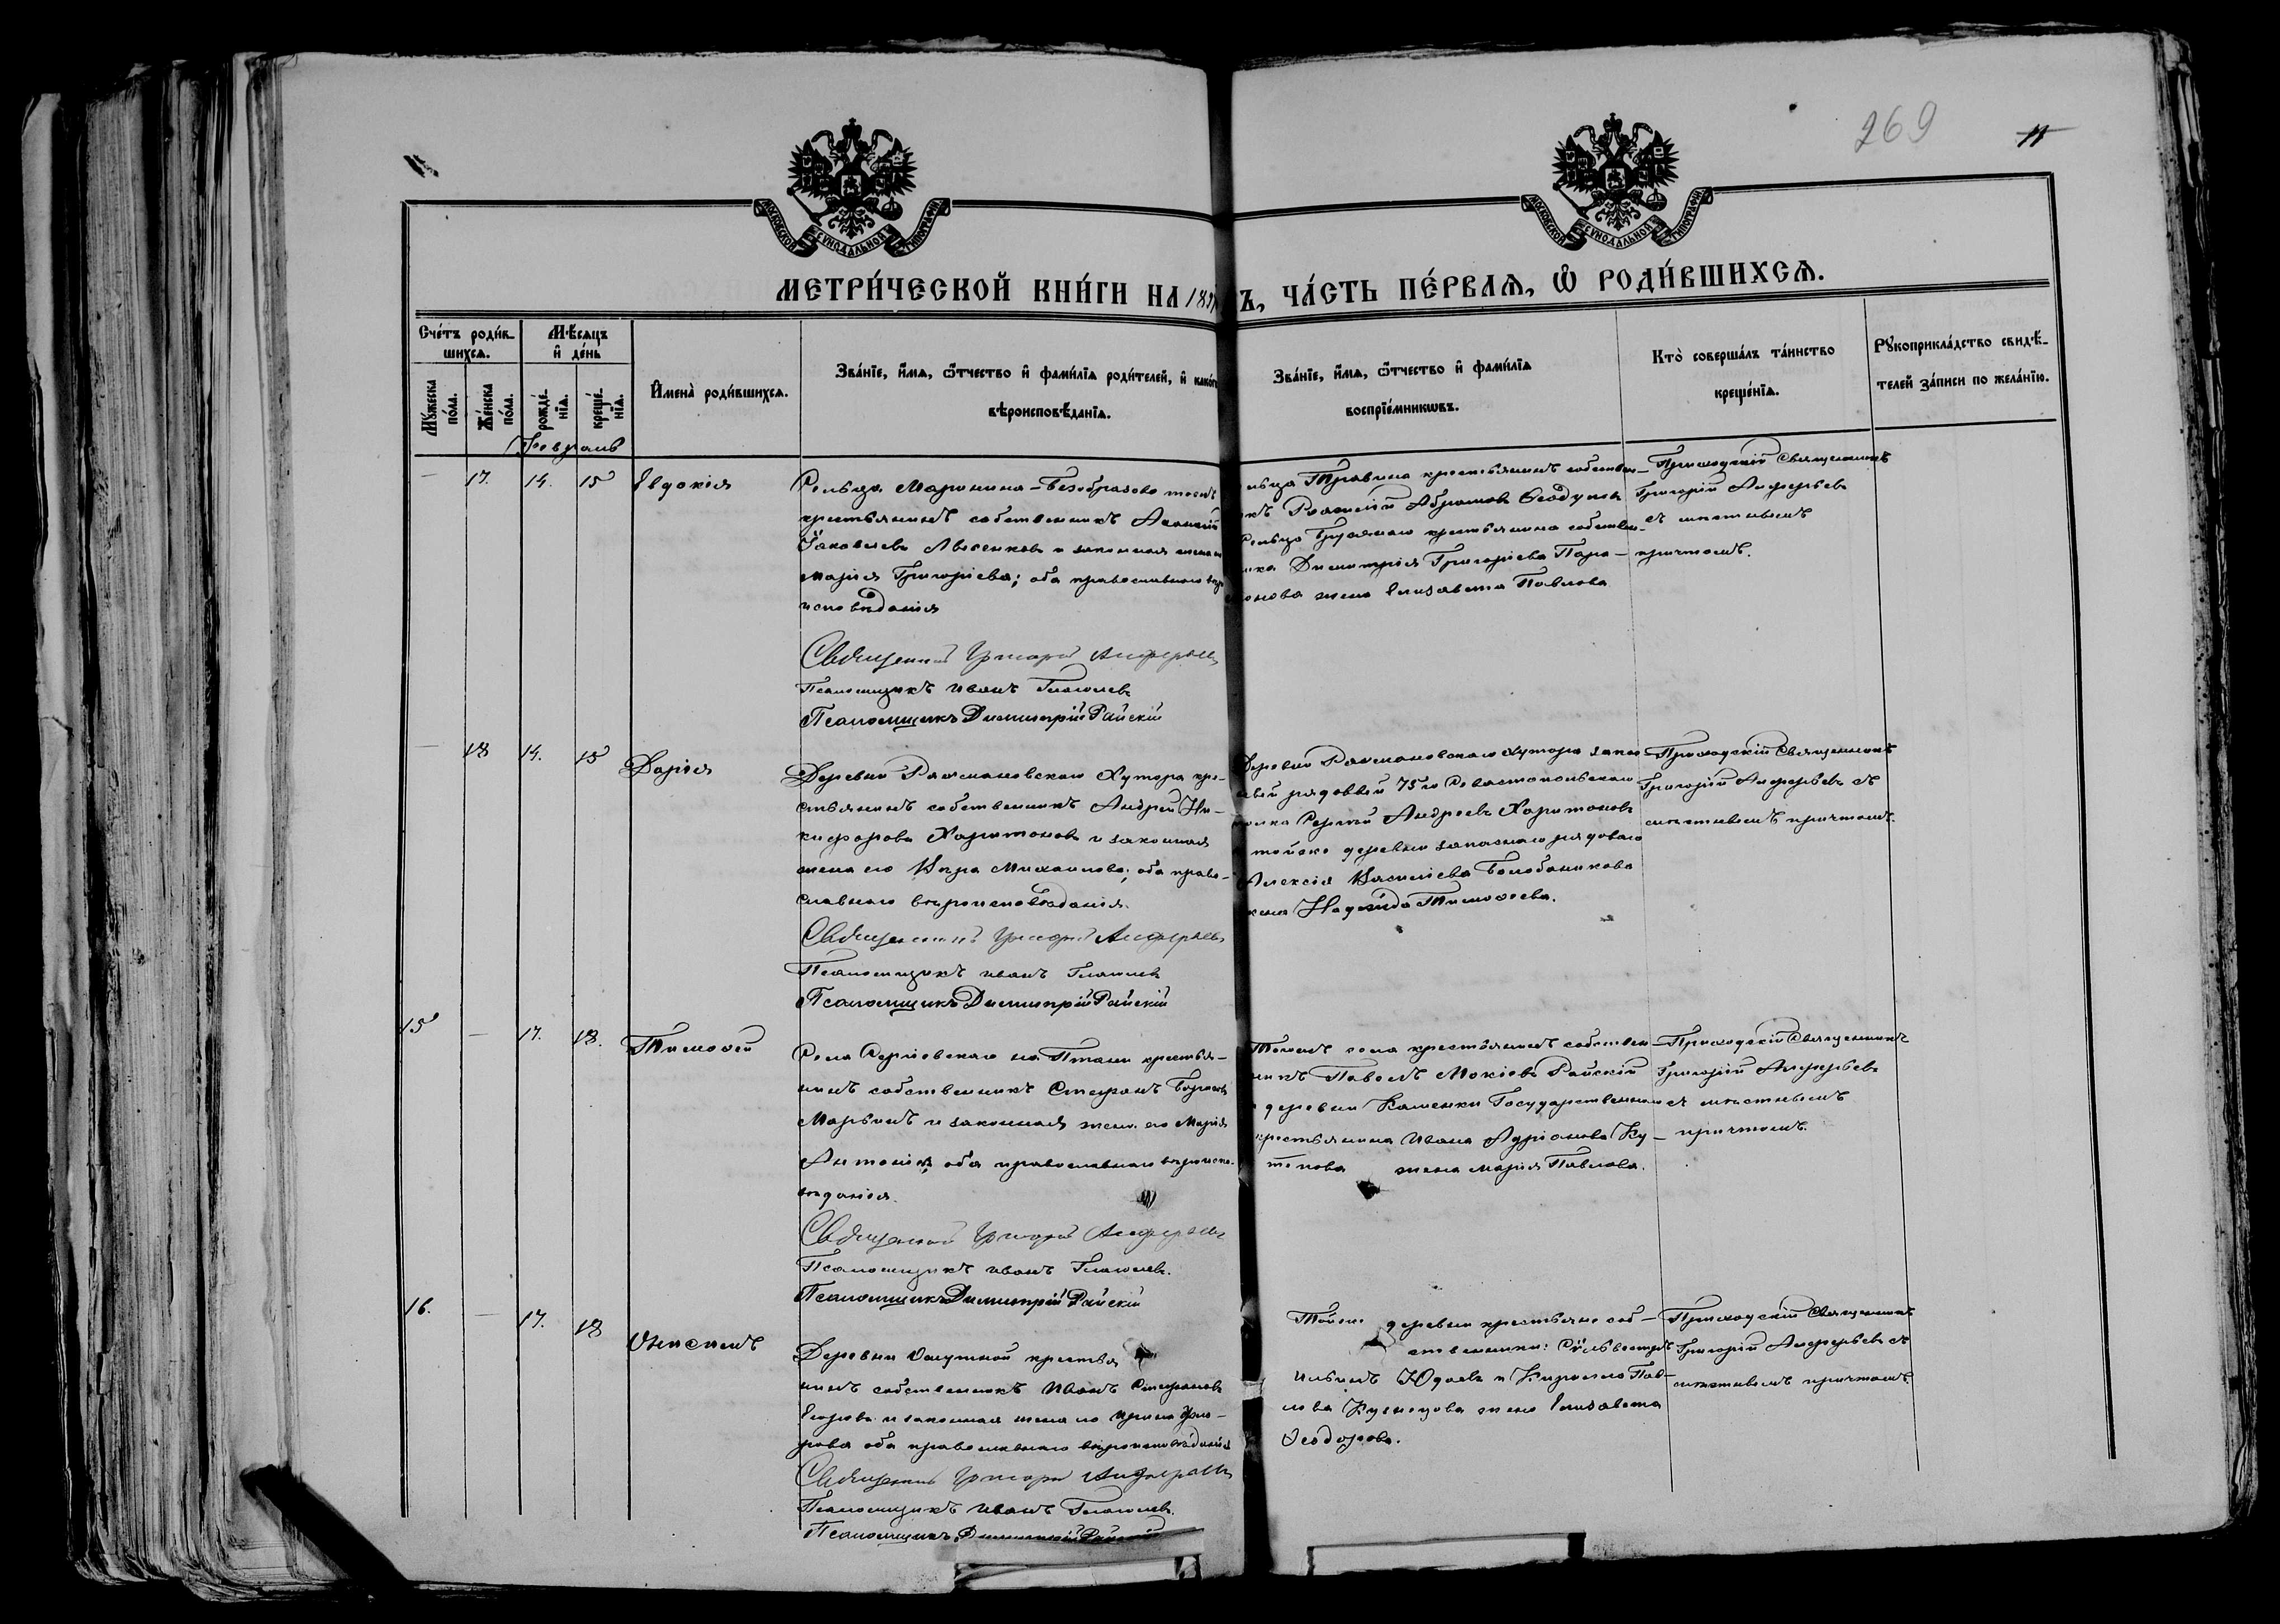 269
11
МОСКОВСКОЙ СѴНОДАЛЬНОЙ ТИПОГРАФІИ
МОСКОВСКОЙ СѴНОДАЛЬНОЙ ТИПОГРАФІИ
МЕТРИ́ЧЕСКОЙ КНИ́ГИ НА 189 Ъ, ЧА́СТЬ ПЕ́РВАѦ, Ѽ РОДИ́ВШИХСѦ.
Сче́тъ роди́в-
шихсѧ.
Мѣсѧцъ
и҆ де́нь
Мꙋжеска по́ла.
Же́нска по́ла.
рожде́-
нїѧ.
креще́-
нїѧ.
И҆мена̀ роди́вшихсѧ.
Зва́нїе, и҆́мѧ, ѻ҆́тчество и҆ фами́лїѧ роди́телей, и҆ како́гѡ
вѣроисповѣ́данїѧ.
Зва́нїе, и҆́мѧ, ѻ҆́тчество и҆ фами́лїѧ
воспрїе́мникѡвъ.
Кто̀ соверша́лъ та́инство
креще́нїѧ.
Рꙋкоприкла́дство свидѣ́-
телей за́писи по жела́нїю.
Февраль
— 17. 14. 15 Евдокія
Сельца Марьина-Безобразово тожъ
крестьянинъ собственникъ
Яковлевъ и законная жена
Марія Григоріева; оба православнаго вѣро
исповѣданія
Священникъ Григорій Алферьевъ
Псаломщикъ Иванъ Глаголевъ
Псаломщикъ Димитрій Райскій
ельца Травина крестьянинъ собствен-
икъ Абрамовъ
Сельца крестьянина собствен-
ика Димитрія Григоріева Пара-
онова жена Елизавета Павлова
Приходскій Священникъ
Григорій Алферьевъ
съ мѣстнымъ
причтомъ.
— 18 14. 15 Дарія
Деревни Рахмановскаго Хутора кре-
стьянинъ собственникъ Андрей Ни-
кифоровъ Харитоновъ и законная
жена его Вѣра Михаилова; оба право-
славнаго вѣроисповѣданія.
Священникъ Григорій Алферьевъ
Псаломщикъ Иванъ Глаголевъ
Псаломщикъ Димитрій Райскій
Деревни Рахмановскаго Хутора запас
рядовой 75го Севастопольскаго
полка Сергѣй Андреевъ Харитоновъ
тойже деревни запаснаго рядоваго
Алексія Василіева Балобанникова
жена Надежда Тимоѳеева.
Приходскій Священникъ
Григорій Алферьевъ съ
мѣстнымъ причтомъ.
15 — 17. 18. Тимоѳей
Села Сергіевскаго на Птани крестья-
нинъ собственникъ Стефанъ Борисовъ
Марьинъ и законная жена его Марія
Антоніева, оба православнаго вѣроиспо-
вѣданія.
Священникъ Григорій Алферьевъ
Псаломщикъ Иванъ Глаголевъ.
Псаломщикъ Димитрій Райскій
Тогожъ села крестьянинъ собствен-
никъ Павелъ Мокіевъ Райскій
деревни Каменки Государственнаго
крестьянина Ивана Адріанова Ку-
тепова жена Марія Павлова.
Приходскій Священникъ
Григорій Алферьевъ
съ мѣстнымъ
причтомъ.
16. — 17. 18 Онисимъ
Деревни крестья
нинъ собственникъ Иванъ Стефановъ
Егоровъ и законная жена его Ирина
рова оба православнаго вѣроисповѣданія
Священникъ Григорій Алферьевъ
Псаломщикъ Иванъ Глаголевъ.
Псаломщикъ Димитрій Райскій
Тойже деревни крестьяне соб-
ственники: Сильвестръ
Ильинъ Юдаевъ и Кирилла Пав-
лова Кузнецова жена Елизавета
Ѳеодорова.
Приходскій Священникъ
Григорій Алферьевъ съ
мѣстнымъ причтомъ.